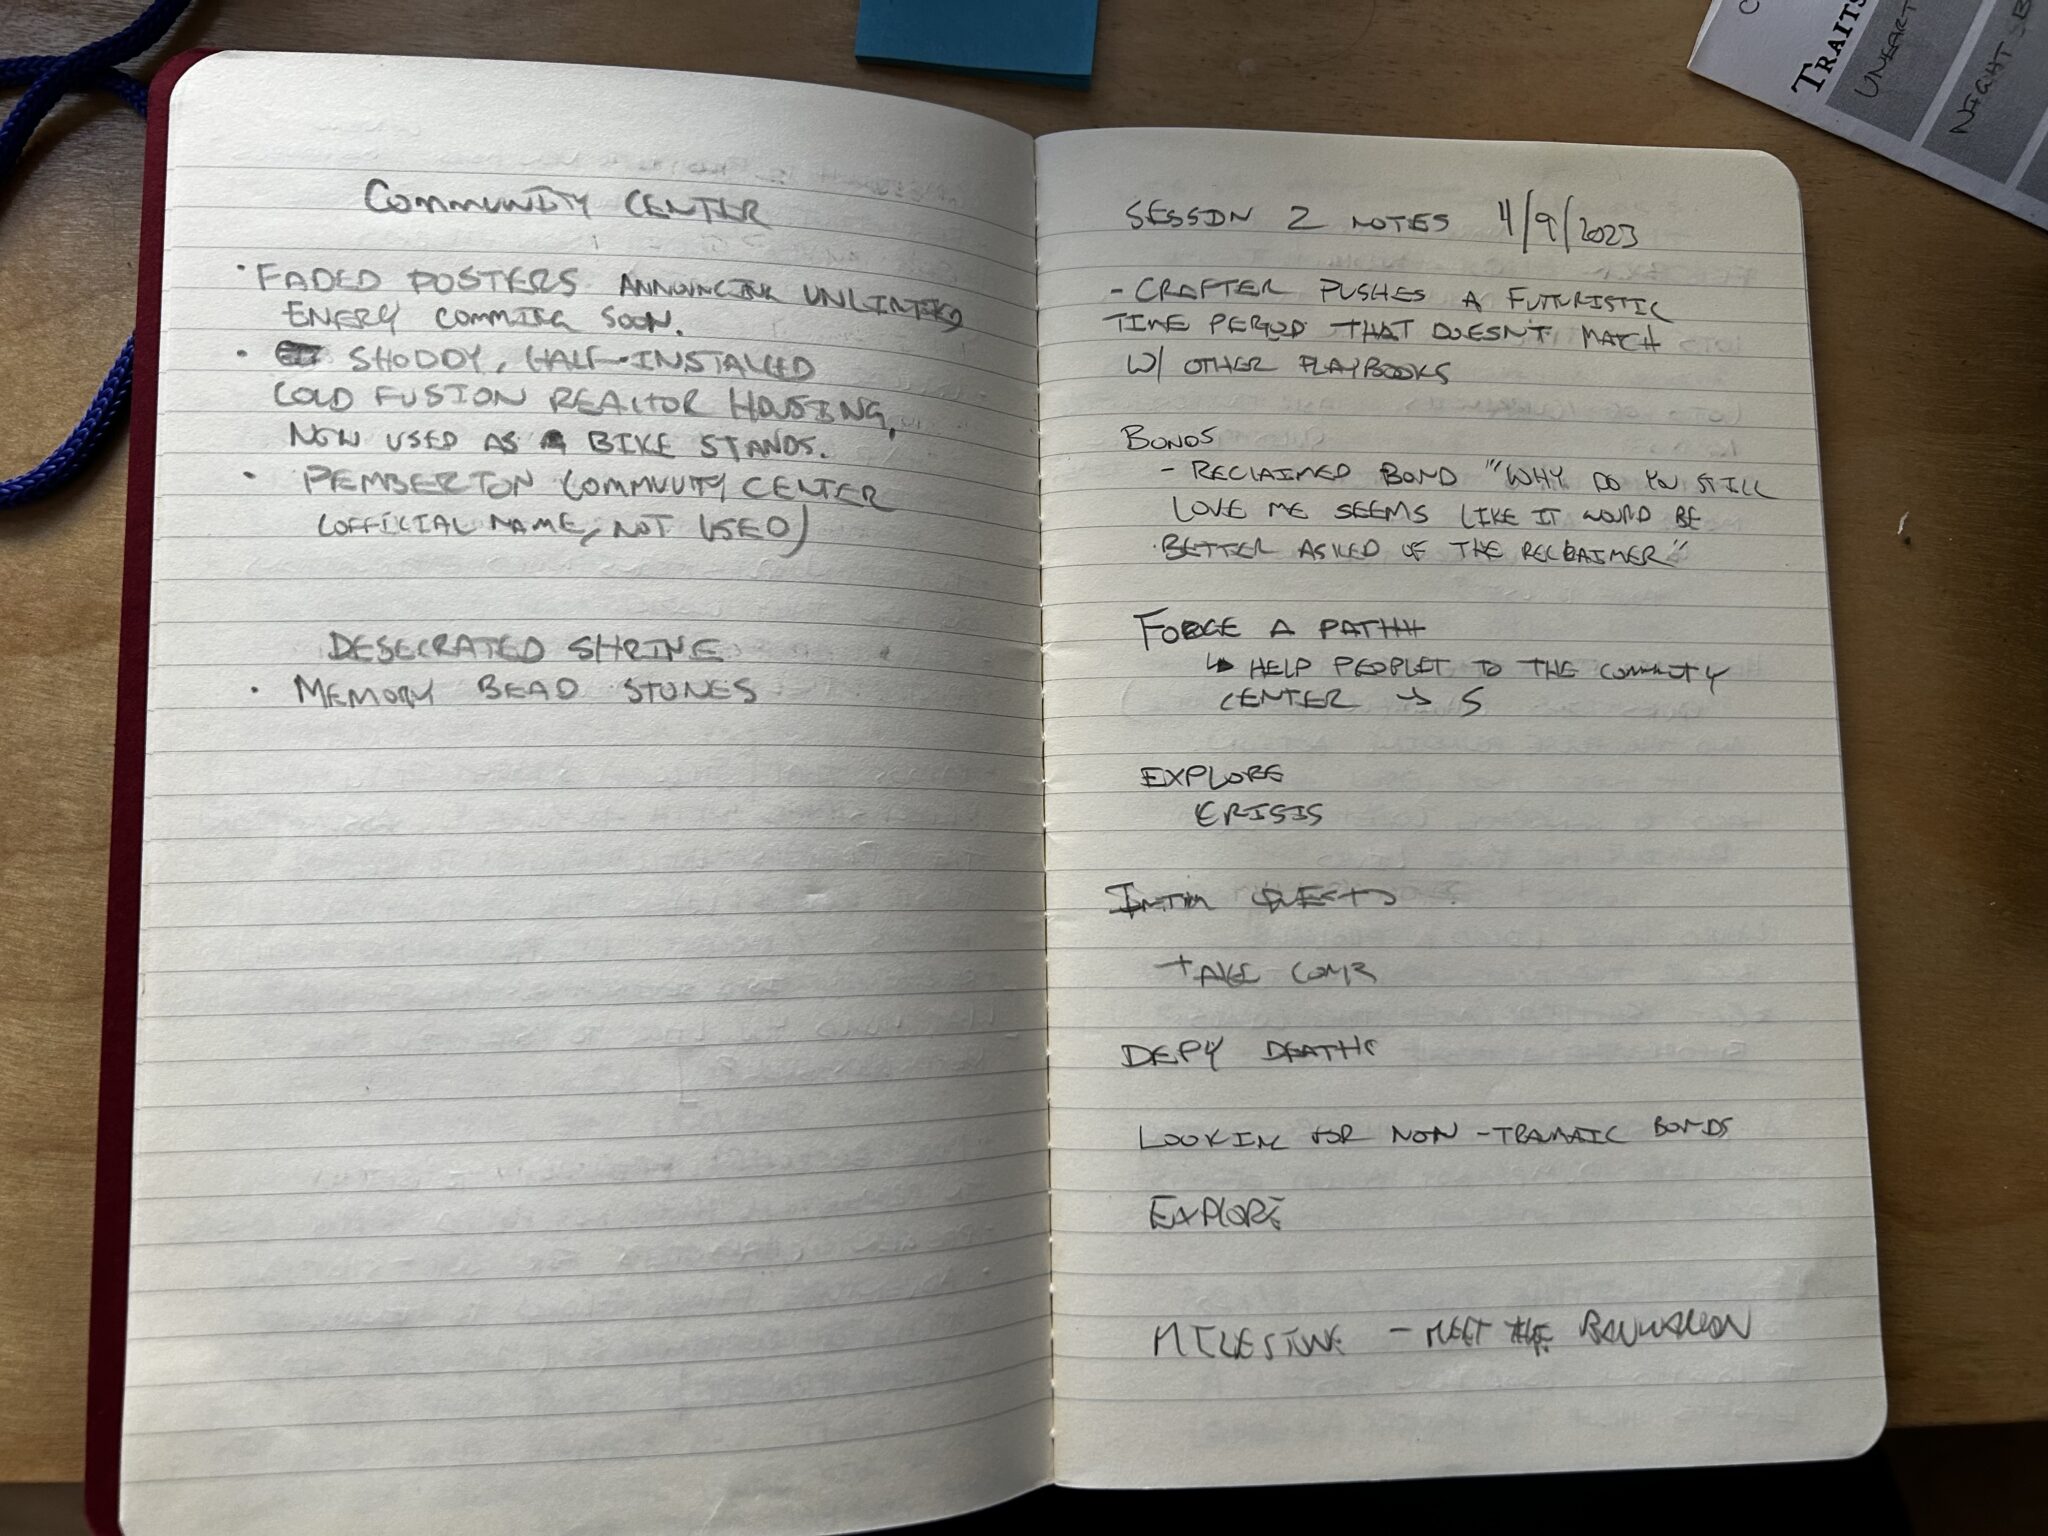 COMMUNITY CENTER
· FADED POSTERS ANNOUNCING UNLIMITED
ENERY COMMING SOON.
· SHODDY, HALF-INSTALLED
COLD FUSION REACTOR HOUSING,
NOW USED AS BIKE STANDS.
· PEMBERTON COMMUUITY CENTER
(OFFICIAL NAME, NOT USED)
DESECRATED SHRINE
· MEMORY BEAD STONES
SESSION 2 NOTES 4/9/2023
- CRAFTER PUSHES A FUTURISTIC
TIME PERIOD THAT DOESN'T MATCH
W/ OTHER PLAYBOOKS
BONDS
- RECLAIMED BOND "WHY DO YOU STILL
LOVE ME SEEMS LIKE IT WOULD BE
BETTER ASKED OF THE RECLAIMER"
FORGE A PATH
↳ HELP PEOPLET TO THE COMMUTY
CENTER → 5
EXPLORE
CRISIS
QUEST
TAKE
DEFY DEATH
LOOKING FOR NON-TRAMATIC BONDS
EXPLORE
MILESTONE - MEET THE
TRAITS
UNEART
NIGHT